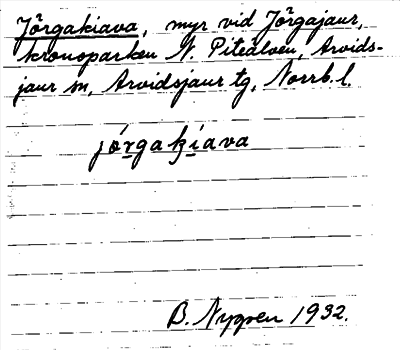 Jörgakiava, myr vid Jörgajaur,
kronoparken N. Piteälven, Arvids-
jaur sn, Arvidsjaur tg, Norrb. l.
jórgaḱiava
B. Nygren 1932.